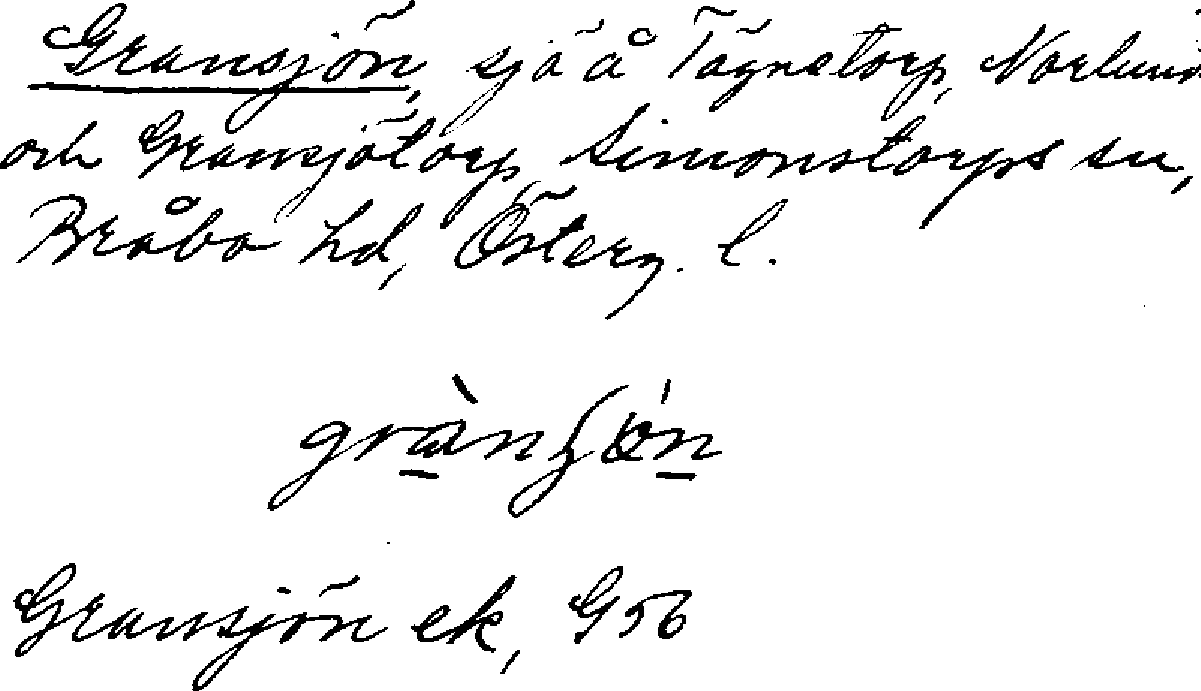 Gransjön, sjö å Tägnetorp, Norlund
och Gransjötorp, Simonstorps sn,
Bråbo hd, Österg. l.
Gransjön ek, G 56